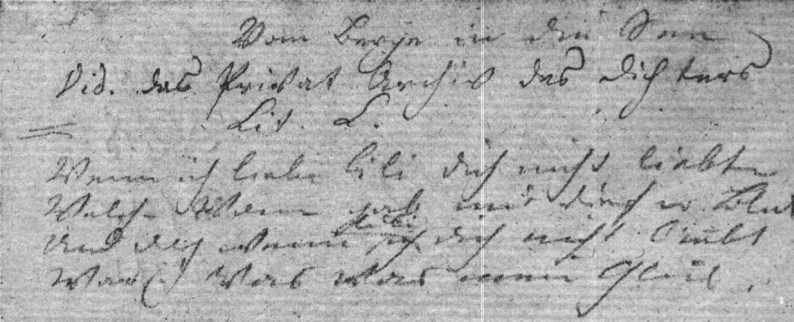 Vom Berge in die See
Vid. das Privat Archiv des Dichters
Lit. L.
Wenn ich liebe Lili dich nicht liebte
Welche Wonne gäb mir dieser Blick
Und doch wenn ich Lili dich nicht liebt
Wär Was wär mein Glück.